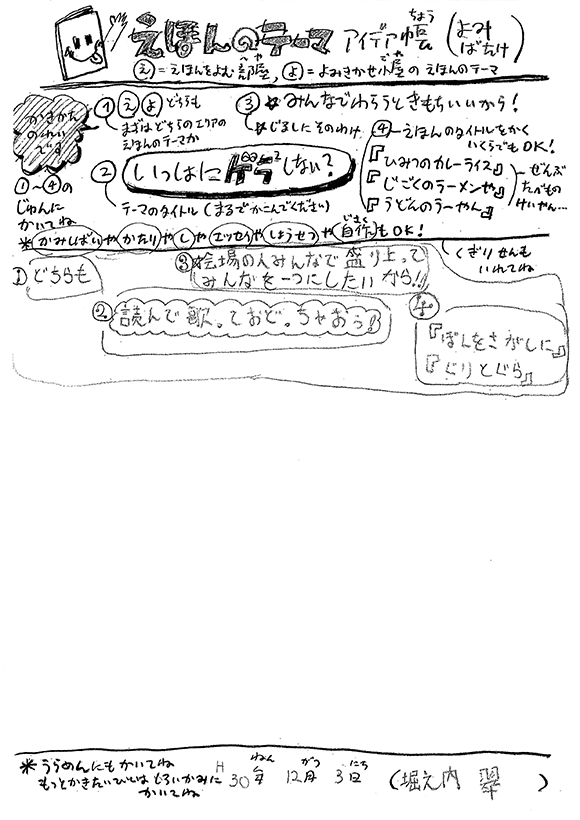 えほんのテーマ アイデア帳(よみばたけ)
ちょう
え=えほんをよむ部屋,よ=よみきかせ小屋のえほんのテーマ
へや
ごや
かきかたのれいです
①~④のじゅんにかいてね
① え よ どちらも
まずはどちらのエリアのえほんのテーマか
② いっしょにゲラゲラしない?
テーマのタイトル(まるでかこんでください)
③ ※みんなでわらうときもちいいから!
※じるしにそのわけ
④ えほんのタイトルをかく
いくらでもOK!
『ひみつのカレーライス』
『じごくのラーメンや』
『うどんのうーやん』
ぜんぶたべものけいやん…
※かみしばいやかたりやしやエッセイやしょうせつや自作もOK!
じさく
くぎりせんもいれてね
① どちらも
③※会場の人みんなで盛り上って
みんなを一つにしたいから!!
② 読んで歌っておどっちゃおう!!
④
『ぽんをさがしに』
『ぐりとぐら』
※うらめんにもかいてね
もっとかきたいひとはしろいかみにかいてね
ねん がつ にち
H30年 12月 3日 (堀之内 翠)